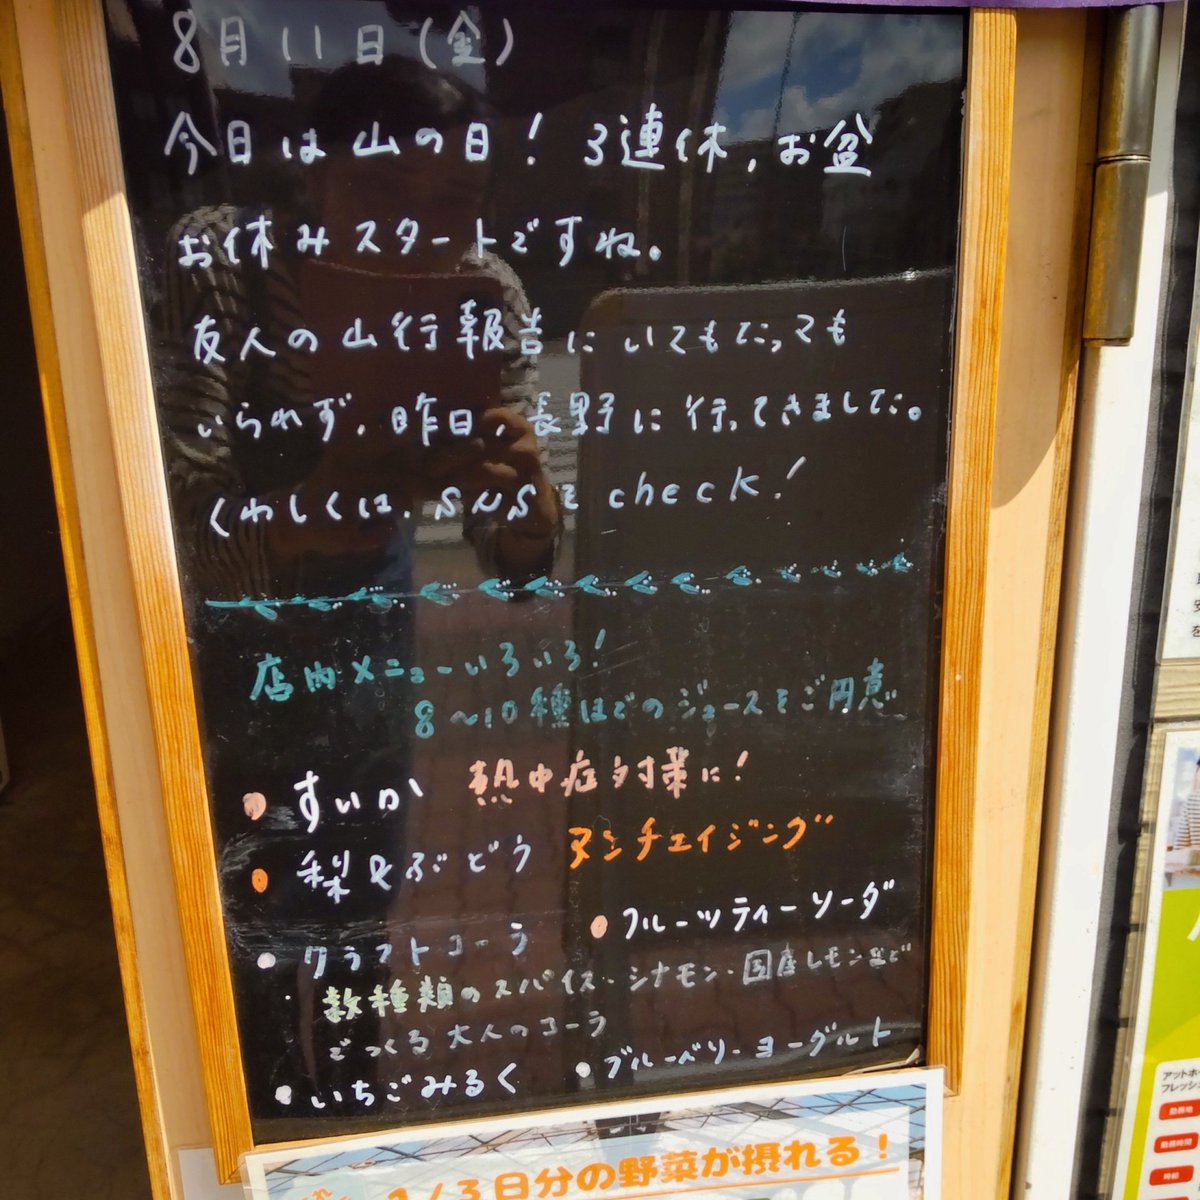 8月11日(金)
今日は山の日! 3連休、お盆
お休みスタートですね。
友人の山行報告にいてもたっても
いられず、昨日、長野に行ってきました。
くわしくは、SNSをcheck!
店内メニューいろいろ!
8〜10種ほどのジュースをご用意
• すいか 熱中症対策に!
• 梨&ぶどう アンチェイジング
• クラフトコーラ • フルーツティーソーダ
数種類のスパイス・シナモン・国産レモンなど
でつくる大人のコーラ
• いちごみるく • ブルーベリーヨーグルト
1/3日分の野菜が摂れる!
アットホ
フレッシ
勤務地
勤務時間
時給